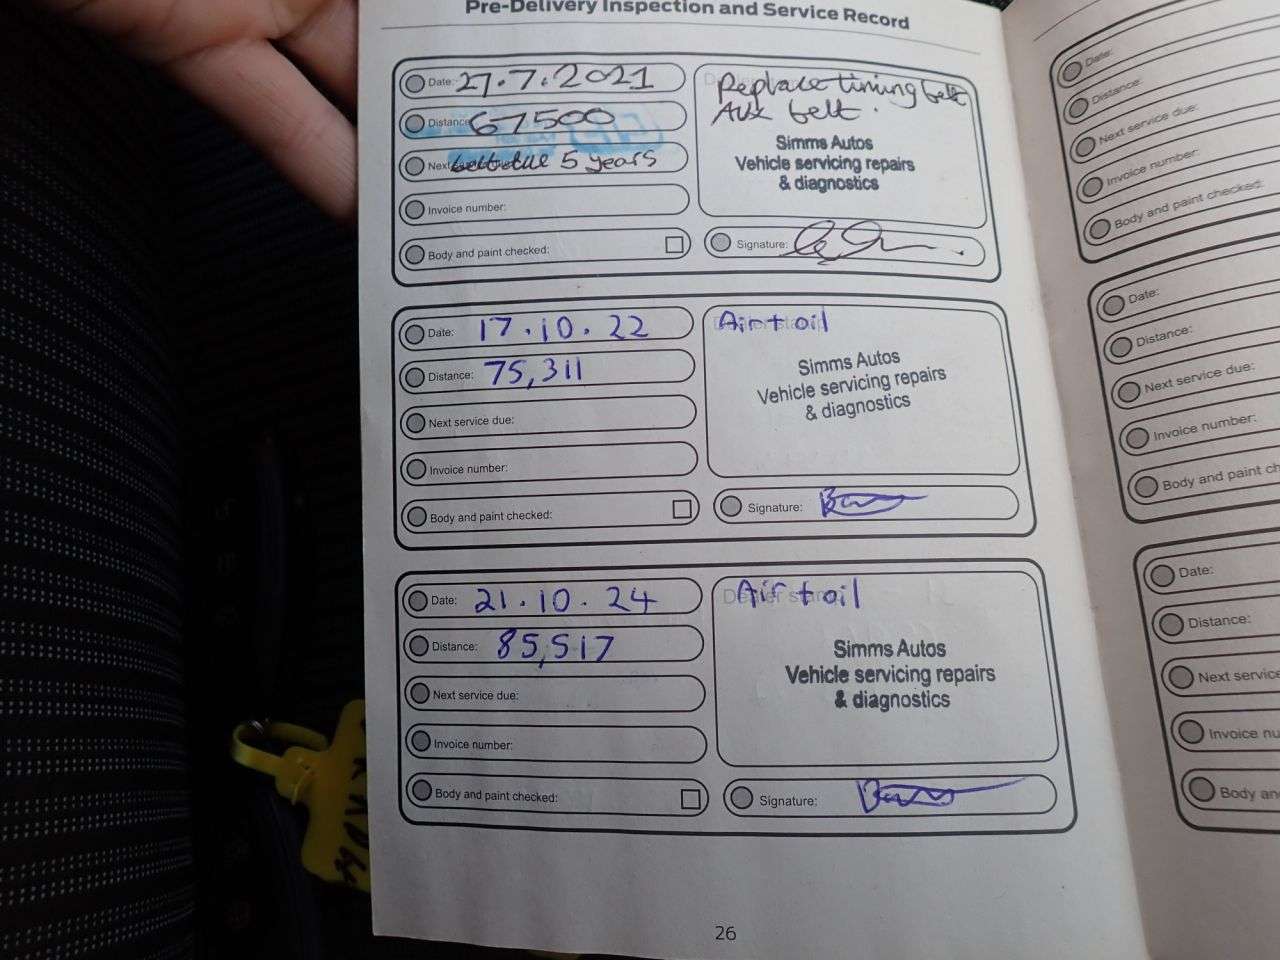 Pre-Delivery Inspection and Service Record
Date: 27.7.2021
Distance: 67500
Next belt due 5 years
Invoice number:
Body and paint checked:
Replace timing belt
Aux belt.
Simms Autos
Vehicle servicing repairs
& diagnostics
Signature:
Date: 17.10.22
Distance: 75,311
Next service due:
Invoice number:
Body and paint checked:
Air + oil
Simms Autos
Vehicle servicing repairs
& diagnostics
Signature:
Date: 21.10.24
Distance: 85,517
Next service due:
Invoice number:
Body and paint checked:
Air + oil
Simms Autos
Vehicle servicing repairs
& diagnostics
Signature:
26
Date:
Distance:
Next service due:
Invoice number:
Body and paint checked:
Date:
Distance:
Next service due:
Invoice number:
Body and paint ch
Date:
Distance:
Next service
Invoice nu
Body an